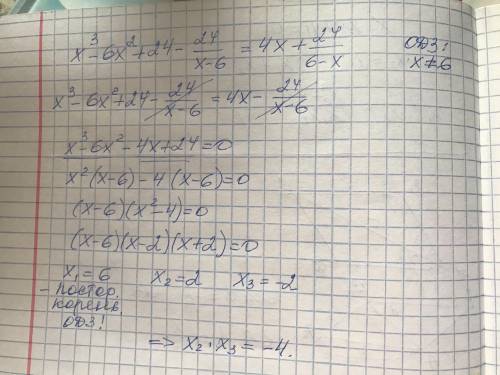 x³-6x²+24-24/(x-6) = 4x+24/(6-x) ОДЗ: x≠6
x³-6x²+24-24/(x-6) = 4x-24/(x-6)
x³-6x²-4x+24=0
x²(x-6)-4(x-6)=0
(x-6)(x²-4)=0
(x-6)(x-2)(x+2)=0
x₁=6 x₂=2 x₃=-2
- постор.
корень
ОДЗ!
=> x₂·x₃=-4.